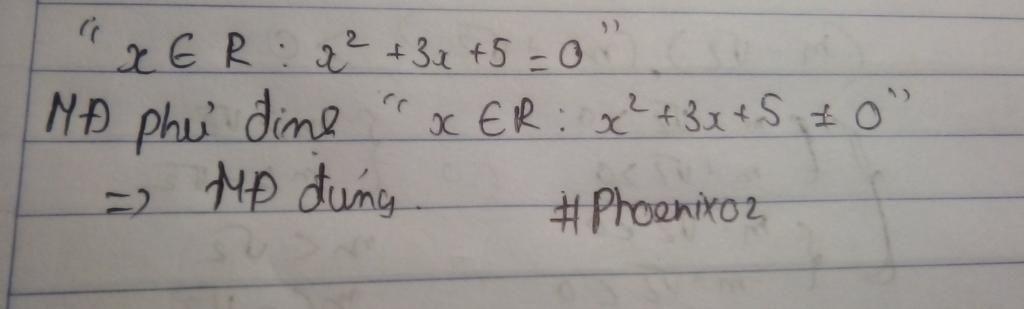 “ x ∈ R : x² + 3x + 5 = 0 ”
MĐ phủ định “ x ∈ R : x² + 3x + 5 ≠ 0 ”
=> MĐ đúng. #Phoenix02